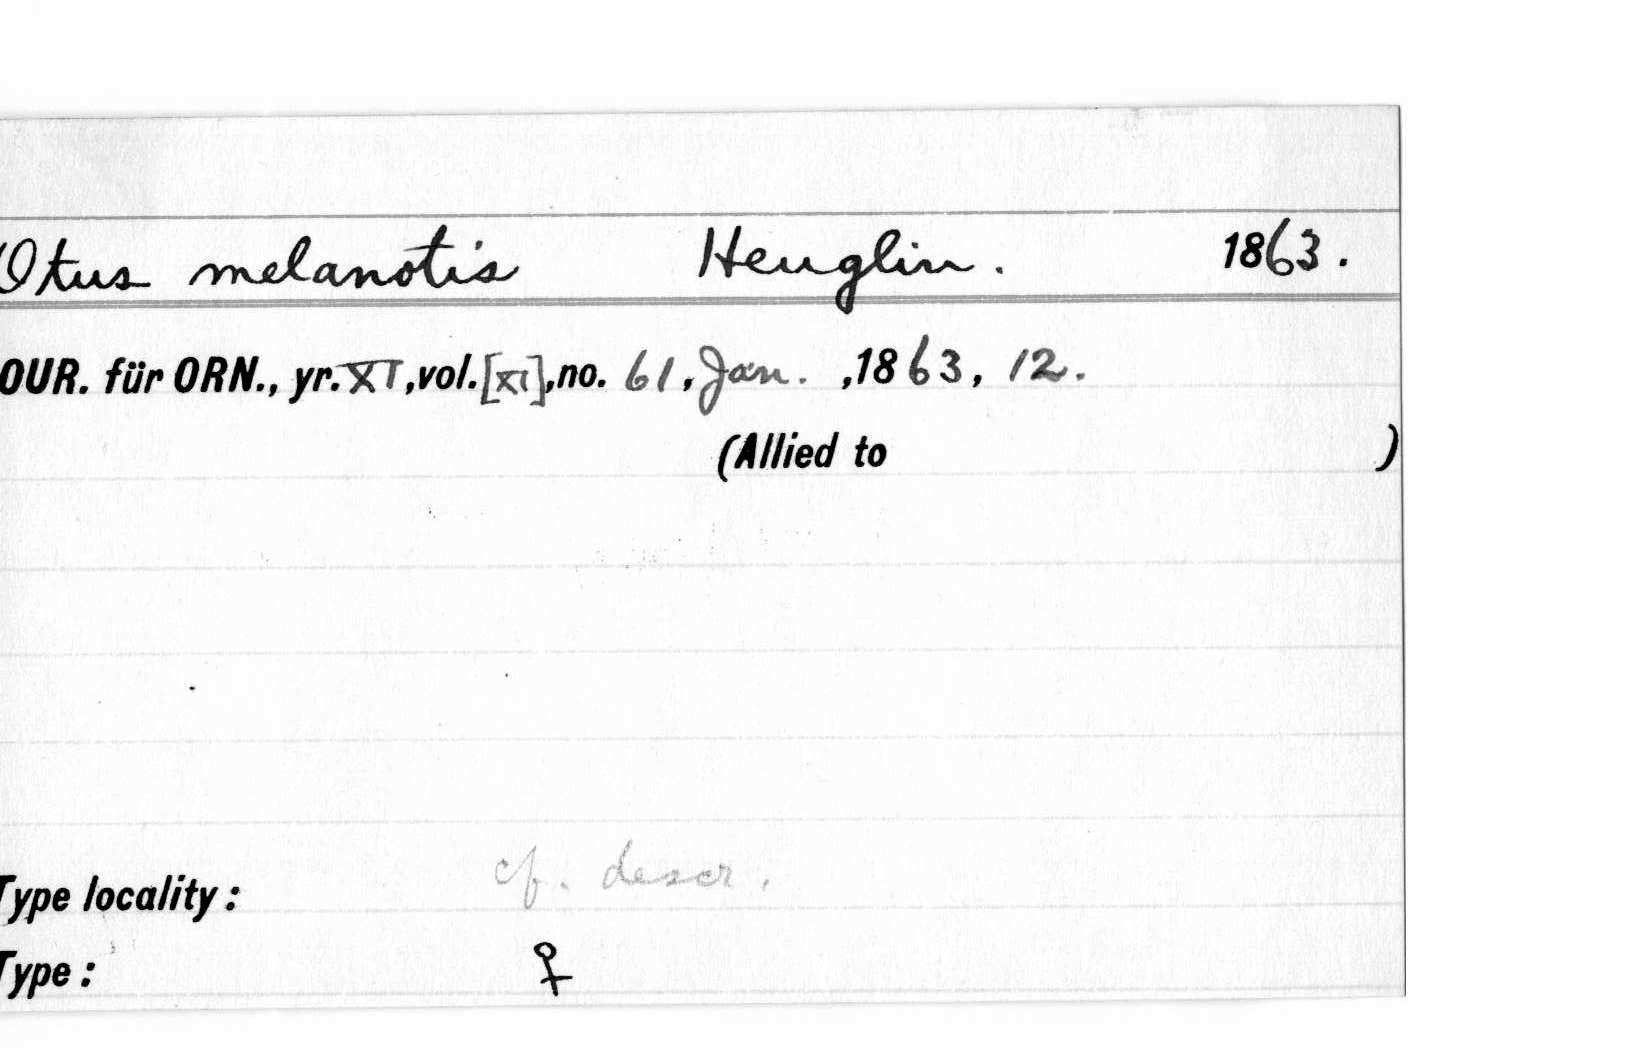 Otus melanotis Heuglin. 1863.
OUR. für ORN., yr. XI, vol. [XI], no. 61, Jan. ,1863, 12.
(Allied to )
cf. descr.
Type locality:
Type: ♀